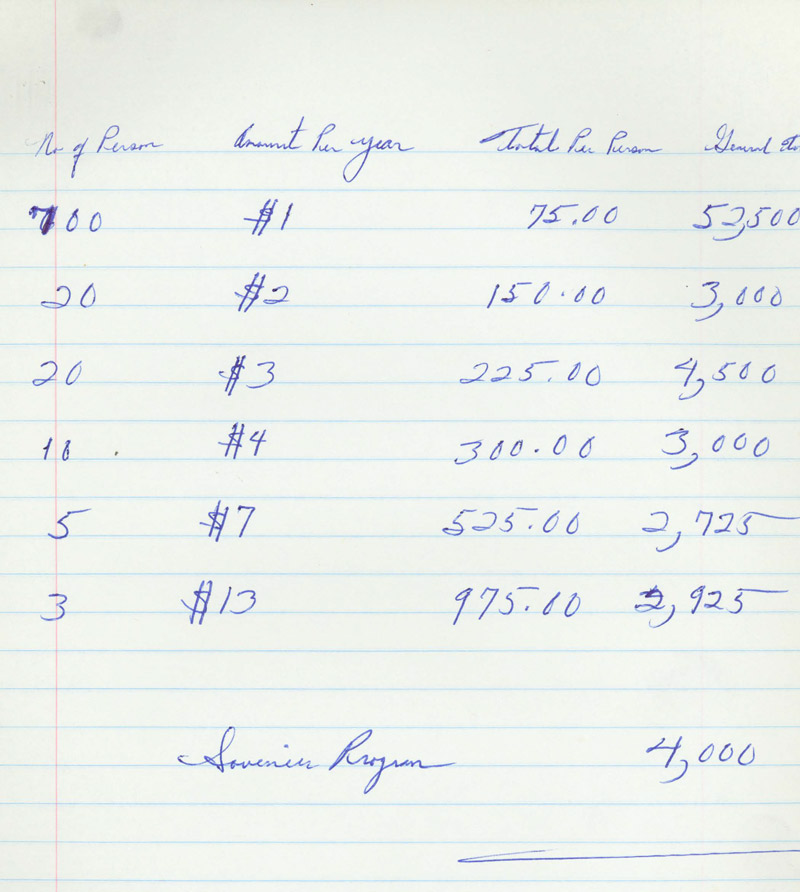 No of Person Amount Per year Total Per Person
700 $1 75.00 52,500
20 $2 150.00 3,000
20 $3 225.00 4,500
10 $4 300.00 3,000
5 $7 525.00 2,725
3 $13 975.00 2,925
Sovenier Program 4,000